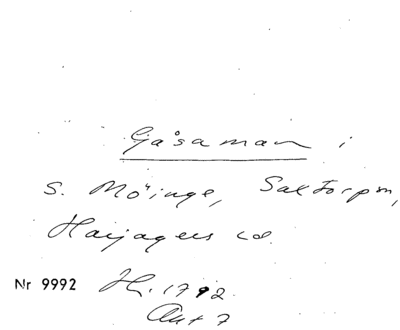 Gåsaman i
S. Möinge, Saxtorpn,
Harjagers hd.
Nr 9992 H. 1792.
Ant 7